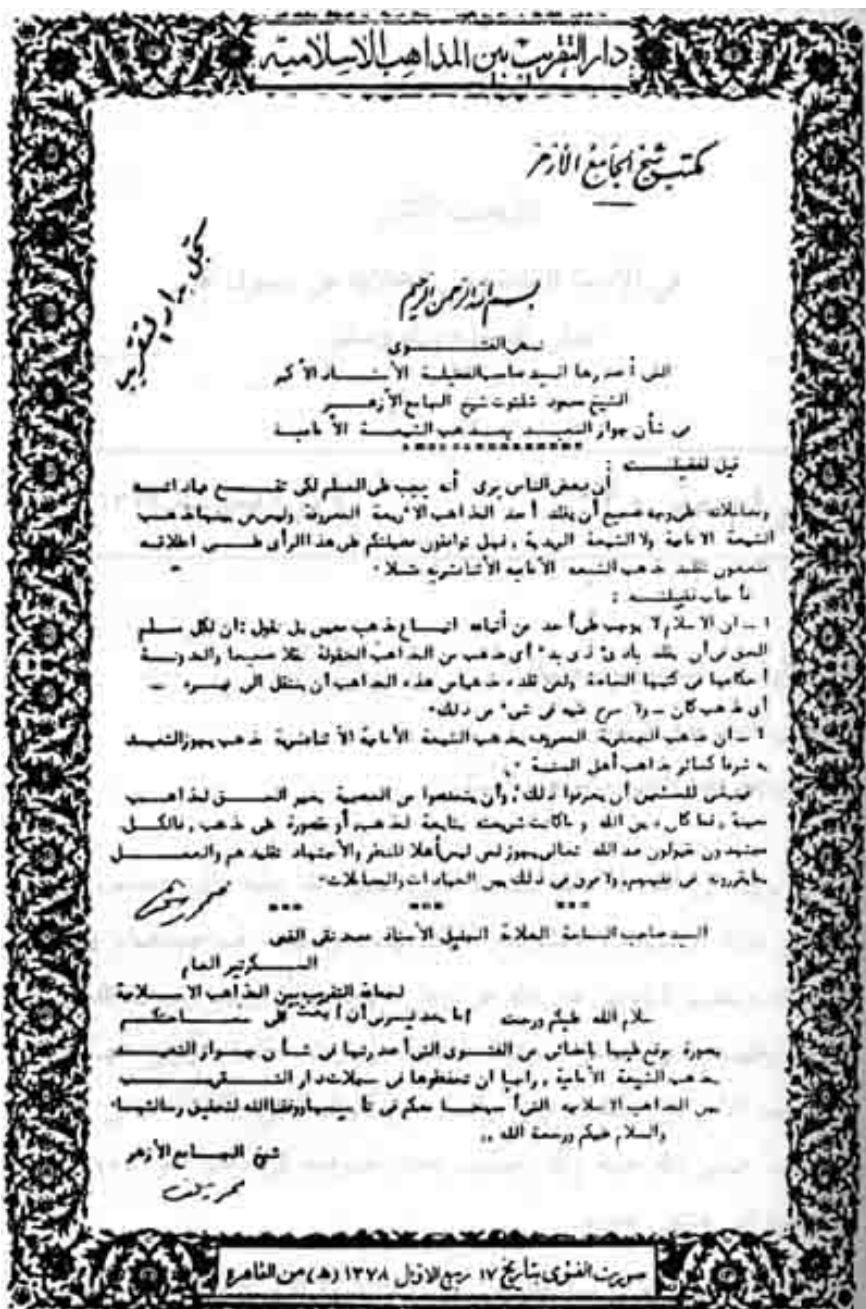 دار التقريب بين المذاهب الاسلامية
مكتب شيخ الجامع الأزهر
بسم الله الرحمن الرحيم
نص الفتوى
التى أصدرها السيد صاحب الفضيلة الأستاذ الأكبر
الشيخ محمود شلتوت شيخ الجامع الأزهر
فى شأن جواز التعبد بمذهب الشيعة الأمامية
قيل لفضيلته :
أن بعض الناس يرى أنه يجب على المسلم لكى تقع عباداته
ومعاملاته على وجه صحيح أن يقلد أحد المذاهب الأربعة المعروفة وليس من بينها مذهب
الشيعة الامامية ولا الشيعة الزيدية , فهل توافقون فضيلتكم على هذا الرأى على اطلاقه
فتمنعون تقليد مذهب الشيعة الأمامية الأثنا عشرية مثلا .
فأجاب فضيلته :
١ ـ ان الاسلام لا يوجب على أحد من أتباعه اتباع مذهب معين بل نقول : ان لكل مسلم
الحق فى أن يقلد بادئ ذى بدء أى مذهب من المذاهب المنقولة نقلا صحيحا والمدونة
أحكامها فى كتبها الخاصة ولمن قلد مذهبا من هذه المذاهب أن ينتقل الى غيره ـ
أى مذهب كان ـ ولا حرج عليه فى شىء من ذلك .
٢ ـ ان مذهب الجعفرية المعروف بمذهب الشيعة الأمامية الأثنا عشرية مذهب يجوز التعبد
به شرعا كسائر مذاهب أهل السنة .
فينبغى للمسلمين أن يعرفوا ذلك , وأن يتخلصوا من العصبية بغير الحق لمذاهب
معينة , فما كان دين الله وما كانت شريعته بتابعة لمذهب أو مقصورة على مذهب , فالكل
مجتهدون مقبولون عند الله تعالى يجوز لمن ليس أهلا للنظر والأجتهاد تقليدهم والعمل
بما يقررونه فى فقههم , ولا فرق فى ذلك بين العبادات والمعاملات .
*** *** ***
السيد صاحب السماحة العلامة الجليل الأستاذ محمد تقى القمى
السكرتير العام
لجماعة التقريب بين المذاهب الاسلامية
سلام الله عليكم ورحمته أما بعد فيسرنى أن أبعث الى سماحتكم
بصورة موقع عليها بامضائى من الفتوى التى أصدرتها فى شأن جواز التعبد
بمذهب الشيعة الأمامية , راجيا ان تحفظوها فى سجلات دار التقريب
بين المذاهب الاسلامية التى أسهمنا معكم فى تأسيسها ووفقنا الله لتحقيق رسالتها .
والسلام عليكم ورحمة الله ,,
شيخ الجامع الأزهر
صورت الفتوى بتاريخ ١٧ ربيع الاول ١٣٧٨ (ه) من القاهرة